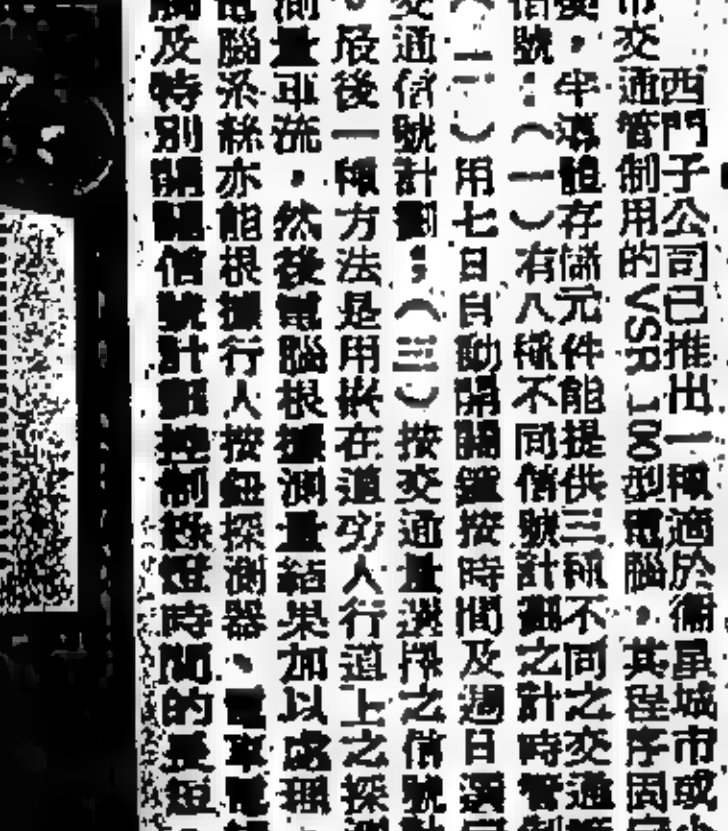 西門子公司已推出一種適於衞星城市或小
市交通管制用的VSR 100型電腦，其程序固
變，半導體存儲元件能提供三種不同之交通
信號：（一）有八種不同信號計劃之計時管制
（二）用七日自動開關鐘按時間及週日選
交通信號計劃；（三）按交通量選擇之信號計
。最後一種方法是用嵌在道旁人行道上之探測
測量車流，然後電腦根據測量結果加以處理
電腦系統亦能根據行人按鈕探測器、電車電
及特別開關信號計劃控制綠燈時間的長短